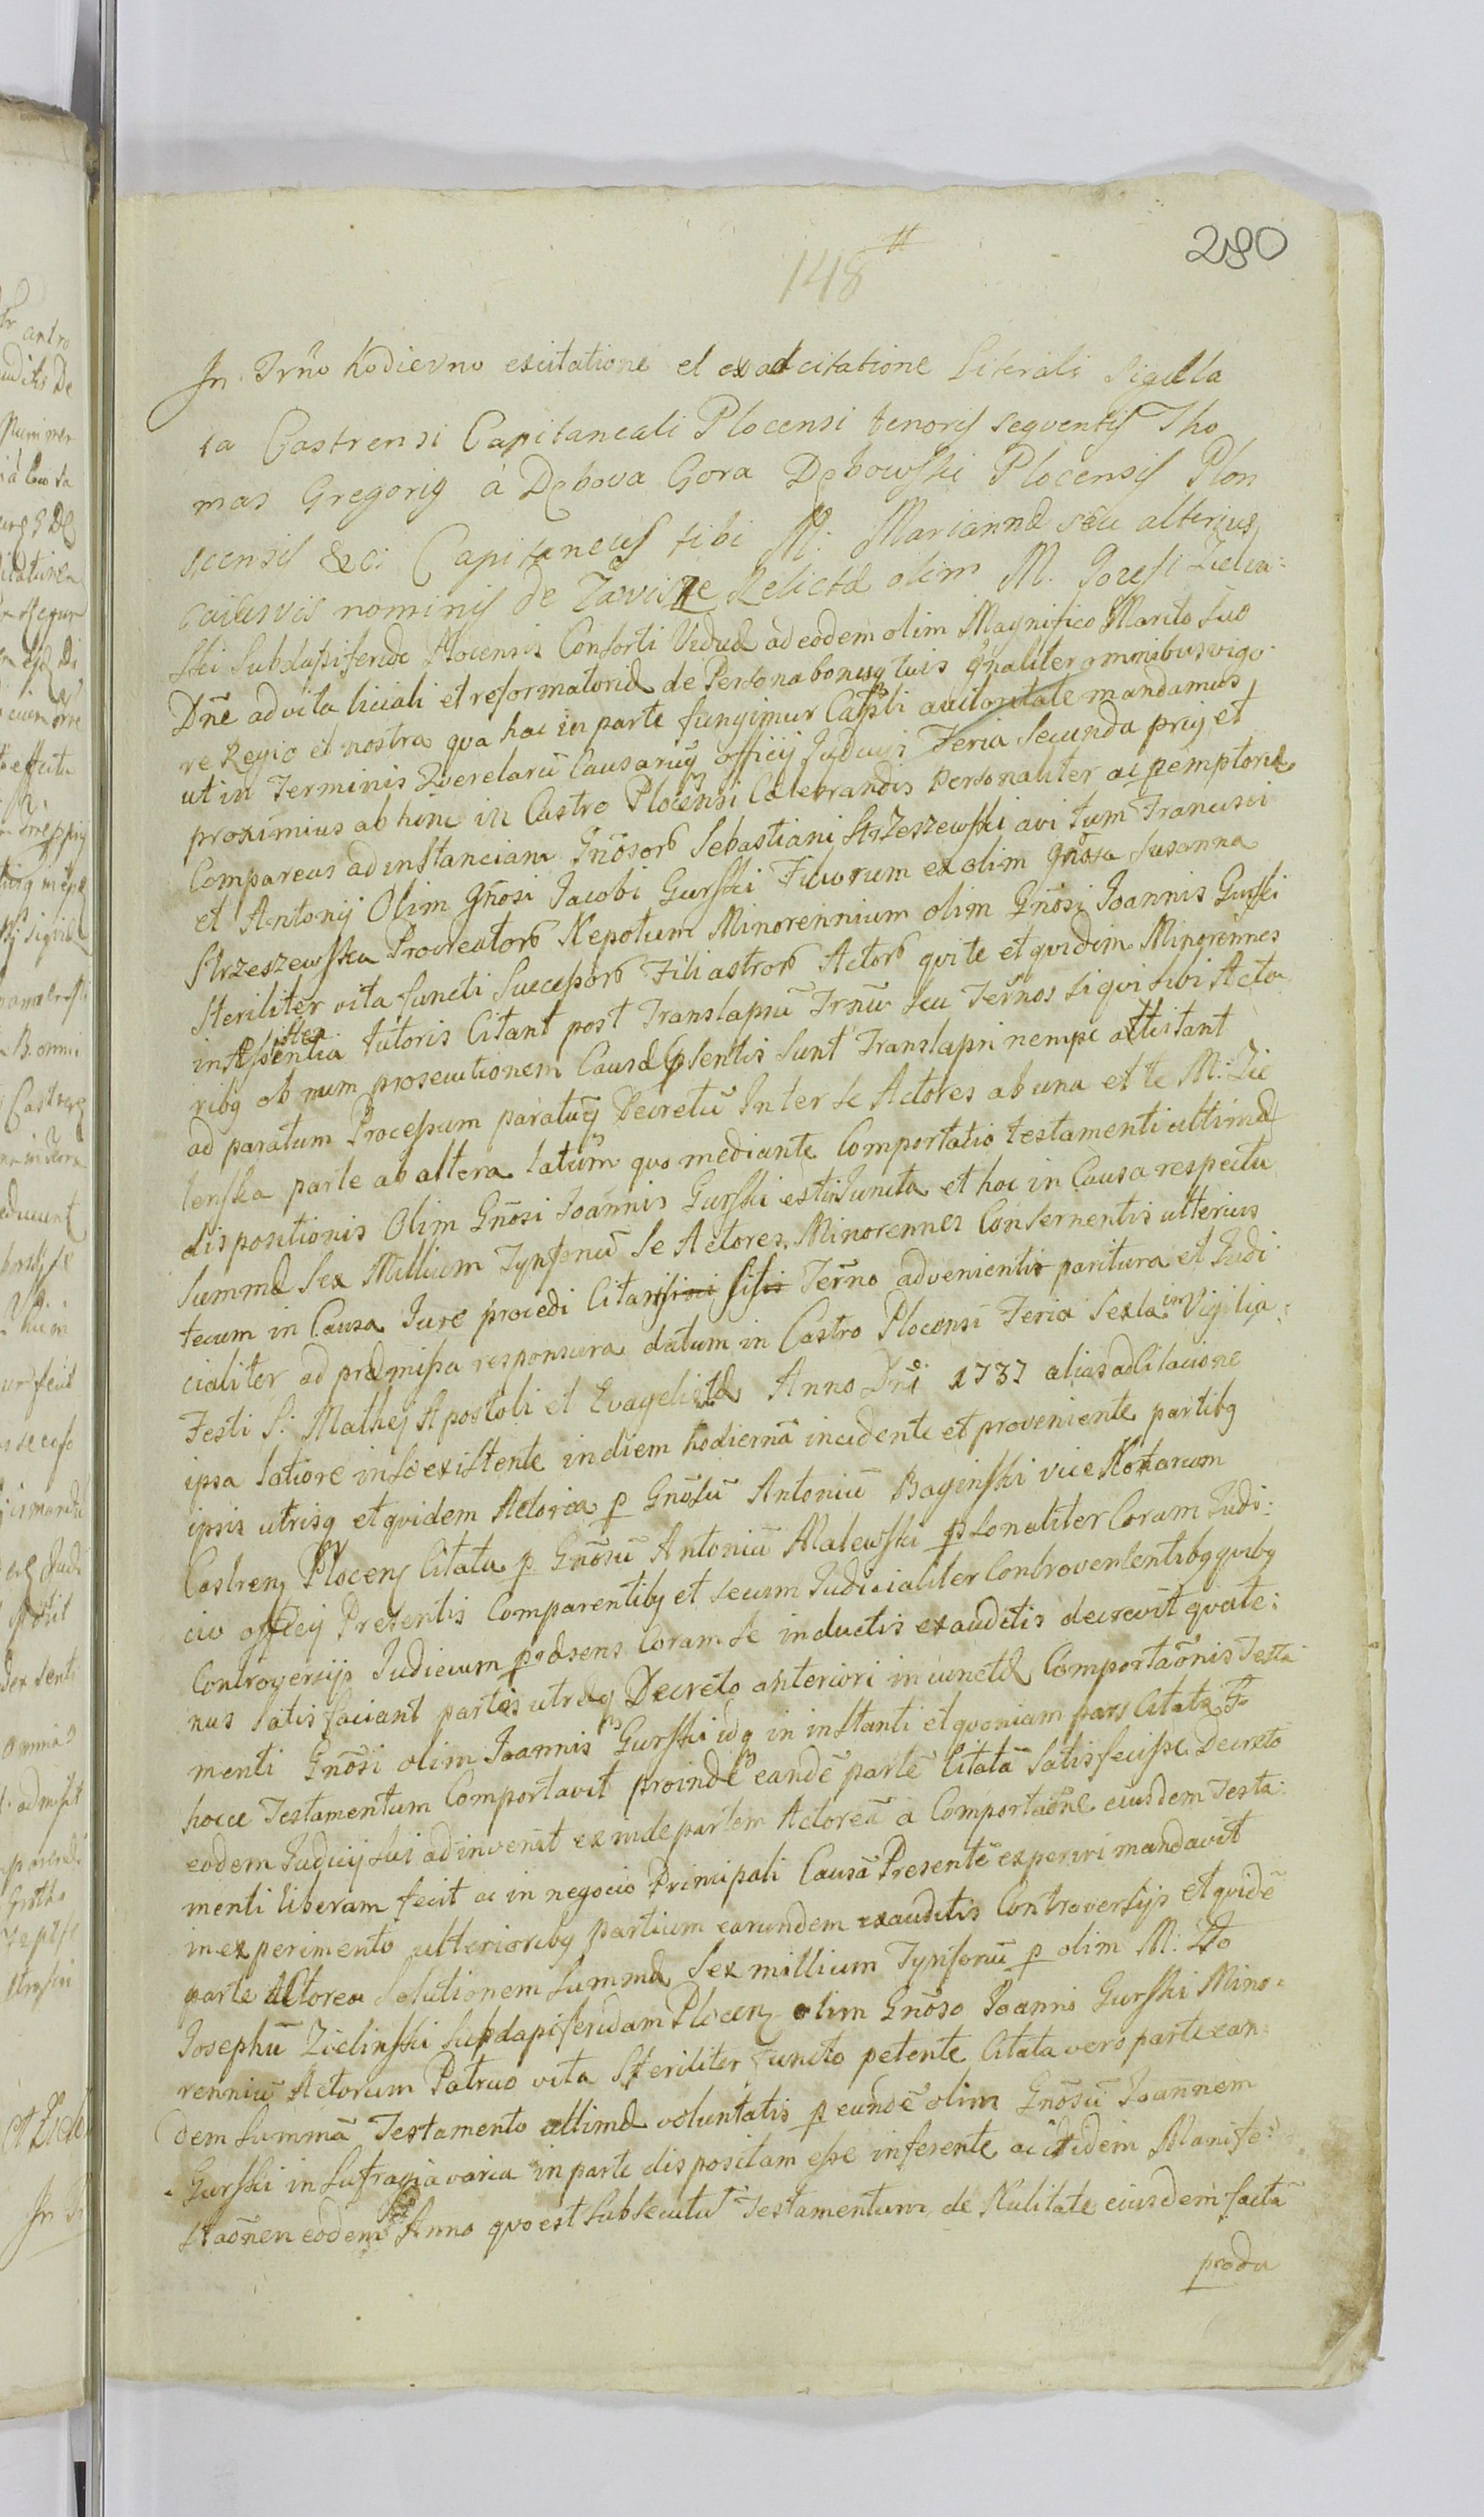 280
148
In Trño hodierno excitatione et ex adcitatione Literali Sigilla
ta Castrensi Capitaneali Plocensi tenoris seqventis Tho
mas Gregorig à Dębova Gora Dębowski Plocensis Plon
scensis &c: Capitaneus tibi M: Mariannæ seu alterius
cuiusvis nominis de Zawisze Relictæ olim M. Josefi Zielin:
ski Subdapiferidæ Plocensis Consorti Viduæ ad eodem olim Magnifico Marito Suo
Dñe advitaliciali et reformatoriæ de Persona bonisq tuis gñaliter omnibus vigo
re Regio et nostra qva hac in parte fungimur Captli auctoritate mandamus
ut in Terminis Qverelarū Causarūq officij Judicij Feria Secunda prij et
proximius ab hinc in Castro Plocensi Celebrandis personaliter ac pemptoriæ
Compareas ad instanciam Gñosorō Sebastiani Strzeszewski avi tum Francisci
et Antonij Olim Gñosi Jacobi Gurski Filiorum ex olim Gñosa Susanna
Strzeszewska Procreatorō Nepotum Minorennium olim Gñosi Joannis Gurski
Steriliter vita functi Successorō Filiastrorō Actorō qvi te et qvidem Minorennes
in Assistentia tutoris Citant post Translapsū Trñū seu Terños si qvi sibi Acto
ribq ob num prosecutionem Causæ pñsentis sunt Translapsi nempe attcitant
ad paratum Processum paratūq Decretū Inter se Actores ab una et te M: Zie
lenska parte ab altera latum qvo mediante Comportatio testamenti ultimæ
dispositionis Olim Gñosi Joannis Gurski est iniuncta et hoc in Causa respectu
Summæ Sex Millium Tynfonū Se Actores Minorennes Concernentis ulterius
tecum in Causa Jure procedi Citaris Sisis Terno advenientis paritura et Judi
cialiter ad præmissa responsura datum in Castro Plocensi Feria Sexta in Vigilia
Festi S: Mathej Apostoli et Evagelistæ Anno Dñi 1737 alias adCitacione
ipsa latiore in se existente in diem hodiernā incidente et proveniente partibq
ipsis utrisq et qvidem Actorea p Gnosū Antoniū Baginski vice Notarium
Castren Plocen Citata p Gnosū Antoniū Malewski psonaliter Coram Judi:
cio officij Presentis Comparentibq et secum Judicialiter Controvententibq qvibq
Controversijs Judicium præsens Coram se inductis exauditis decrevit qvate:
nus Satisfaciant partes utræq Decreto anteriori iniunctæ Comportaõnis Testa
menti Gñosi olim Joannis Gurski idq in instanti et qvoniam pars Citata
hocce Testamentum Comportavit proindē eandē partē Citatā Satisfecisse Decreto
eodem Judicij sui adinvenit exinde partem Actoreā a Comportaõne eiusdem Testa:
menti liberam fecit ac in negocio Principali Causā Presentē experiri mandavit
in experimento ulterioribq partium earundem exauditis Controversijs et qvidē
parte Actorea Solutionem Summæ Sex millium Tynfonū p olim M:
Josephū Zielinski Subdapiferidam Plocen olim Gñoso Joanni Gurski Mino:
renniū Actorum Patruo vita Steriliter Functo petente Citata vero parte ean:
dem Summā Testamento ultimæ voluntatis p eundē olim Gñosū Joannem
Gurski in Sufragia varia in parte dispositam esse inferente ac itidem Manife:
staõnem eodem Anno qvo est Subsecutū Testamentum de Nulitate eiusdem factā
produ